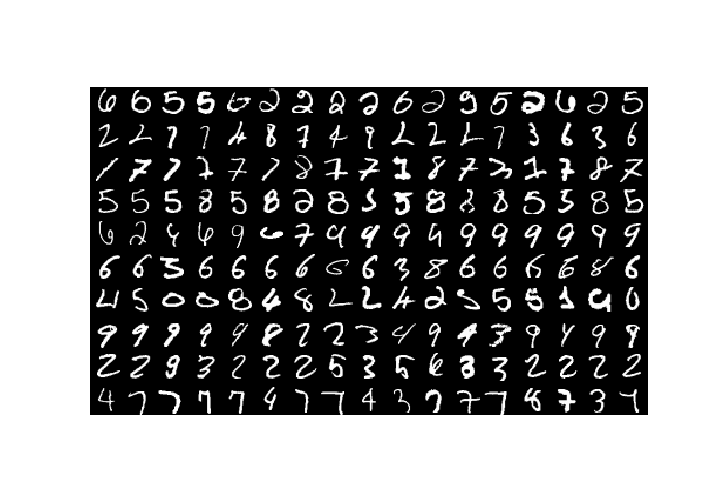 6 6 5 5 6 2 2 2 2 6 2 9 5 2 6 2 5
2 2 7 7 4 8 7 4 9 2 2 2 7 3 6 3 6
7 7 7 7 7 8 7 7 1 8 7 7 7 8 7
5 5 5 8 5 8 2 8 5 5 8 8 8 5 5 8 5
6 2 4 6 9 6 7 9 9 9 9 9 9 9 9 9 9
6 6 5 6 6 6 6 6 6 3 8 6 6 6 6 8 6
4 5 0 0 8 4 8 2 2 4 2 5 5 5 1 9 0
9 9 9 9 9 8 2 2 3 4 9 9 3 9 4 9 9
2 2 9 3 2 2 2 5 3 5 6 3 3 2 2 2 2
4 7 7 7 7 9 7 7 4 3 7 7 7 8 7 3 7